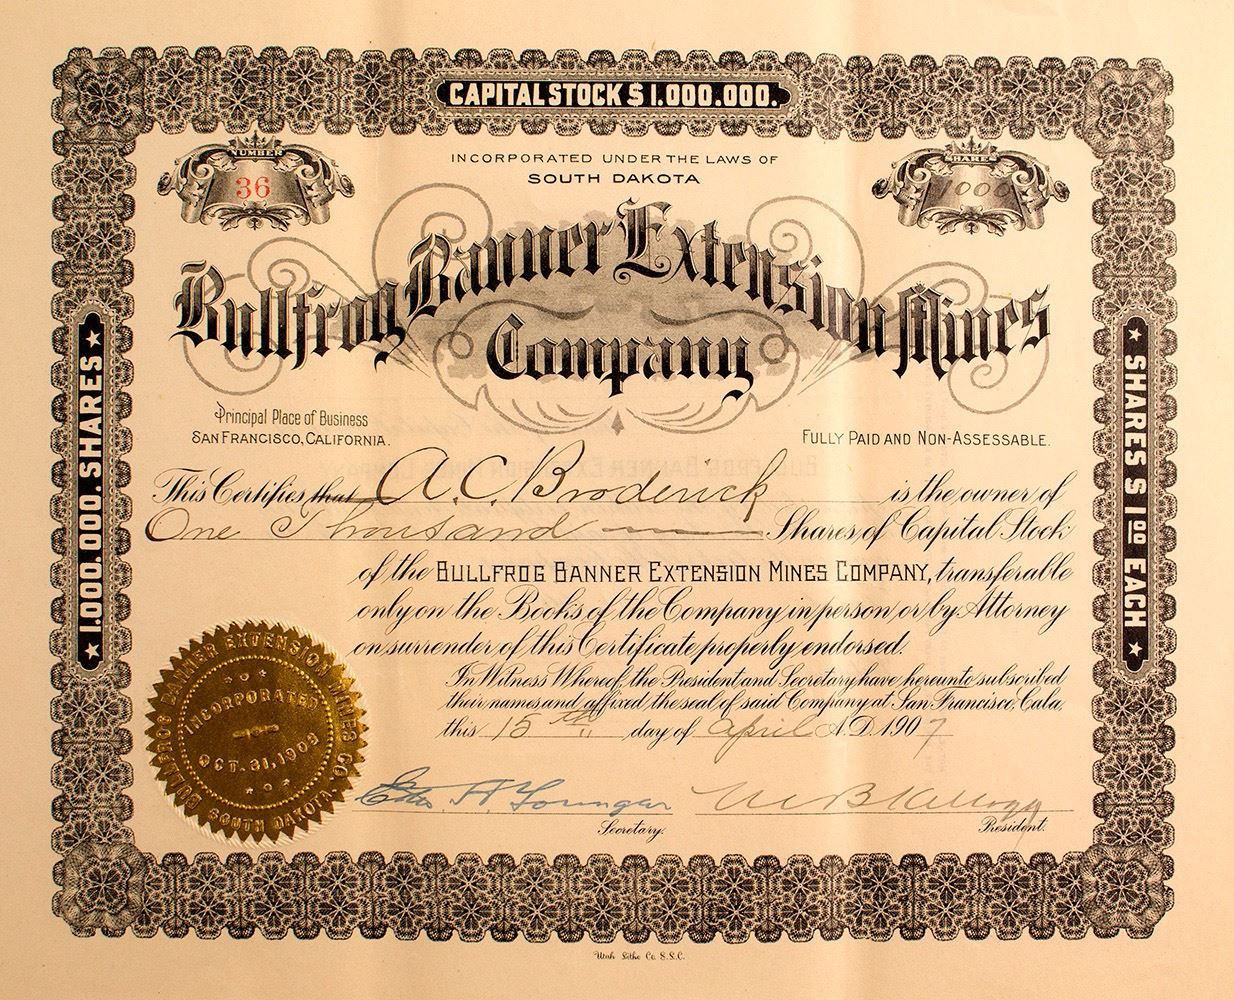 CAPITAL STOCK $ 1.000.000.
NUMBER
36
INCORPORATED UNDER THE LAWS OF
SOUTH DAKOTA
SHARES
1000
Bullfrog Banner Extension Mines
Company
Principal Place of Business
SAN FRANCISCO, CALIFORNIA.
FULLY PAID AND NON-ASSESSABLE.
This Certifies that A. C. Broderick is the owner of
One Thousand Shares of Capital Stock
of the BULLFROG BANNER EXTENSION MINES COMPANY, transferable
only on the Books of the Company in person or by Attorney
on surrender of this Certificate properly endorsed.
In Witness Whereof, the President and Secretary have hereunto subscribed
their names and affixed the seal of said Company at San Francisco, Cala
this 15th day of April A.D. 1907
H Younger
Secretary.
B Kellogg
President.
1.000.000. SHARES
SHARES $ 1 00 EACH
BULLFROG BANNER EXTENSION MINES CO.
SOUTH DAKOTA
INCORPORATED
OCT. 31, 190
Utah Litho Co. S.L.C.